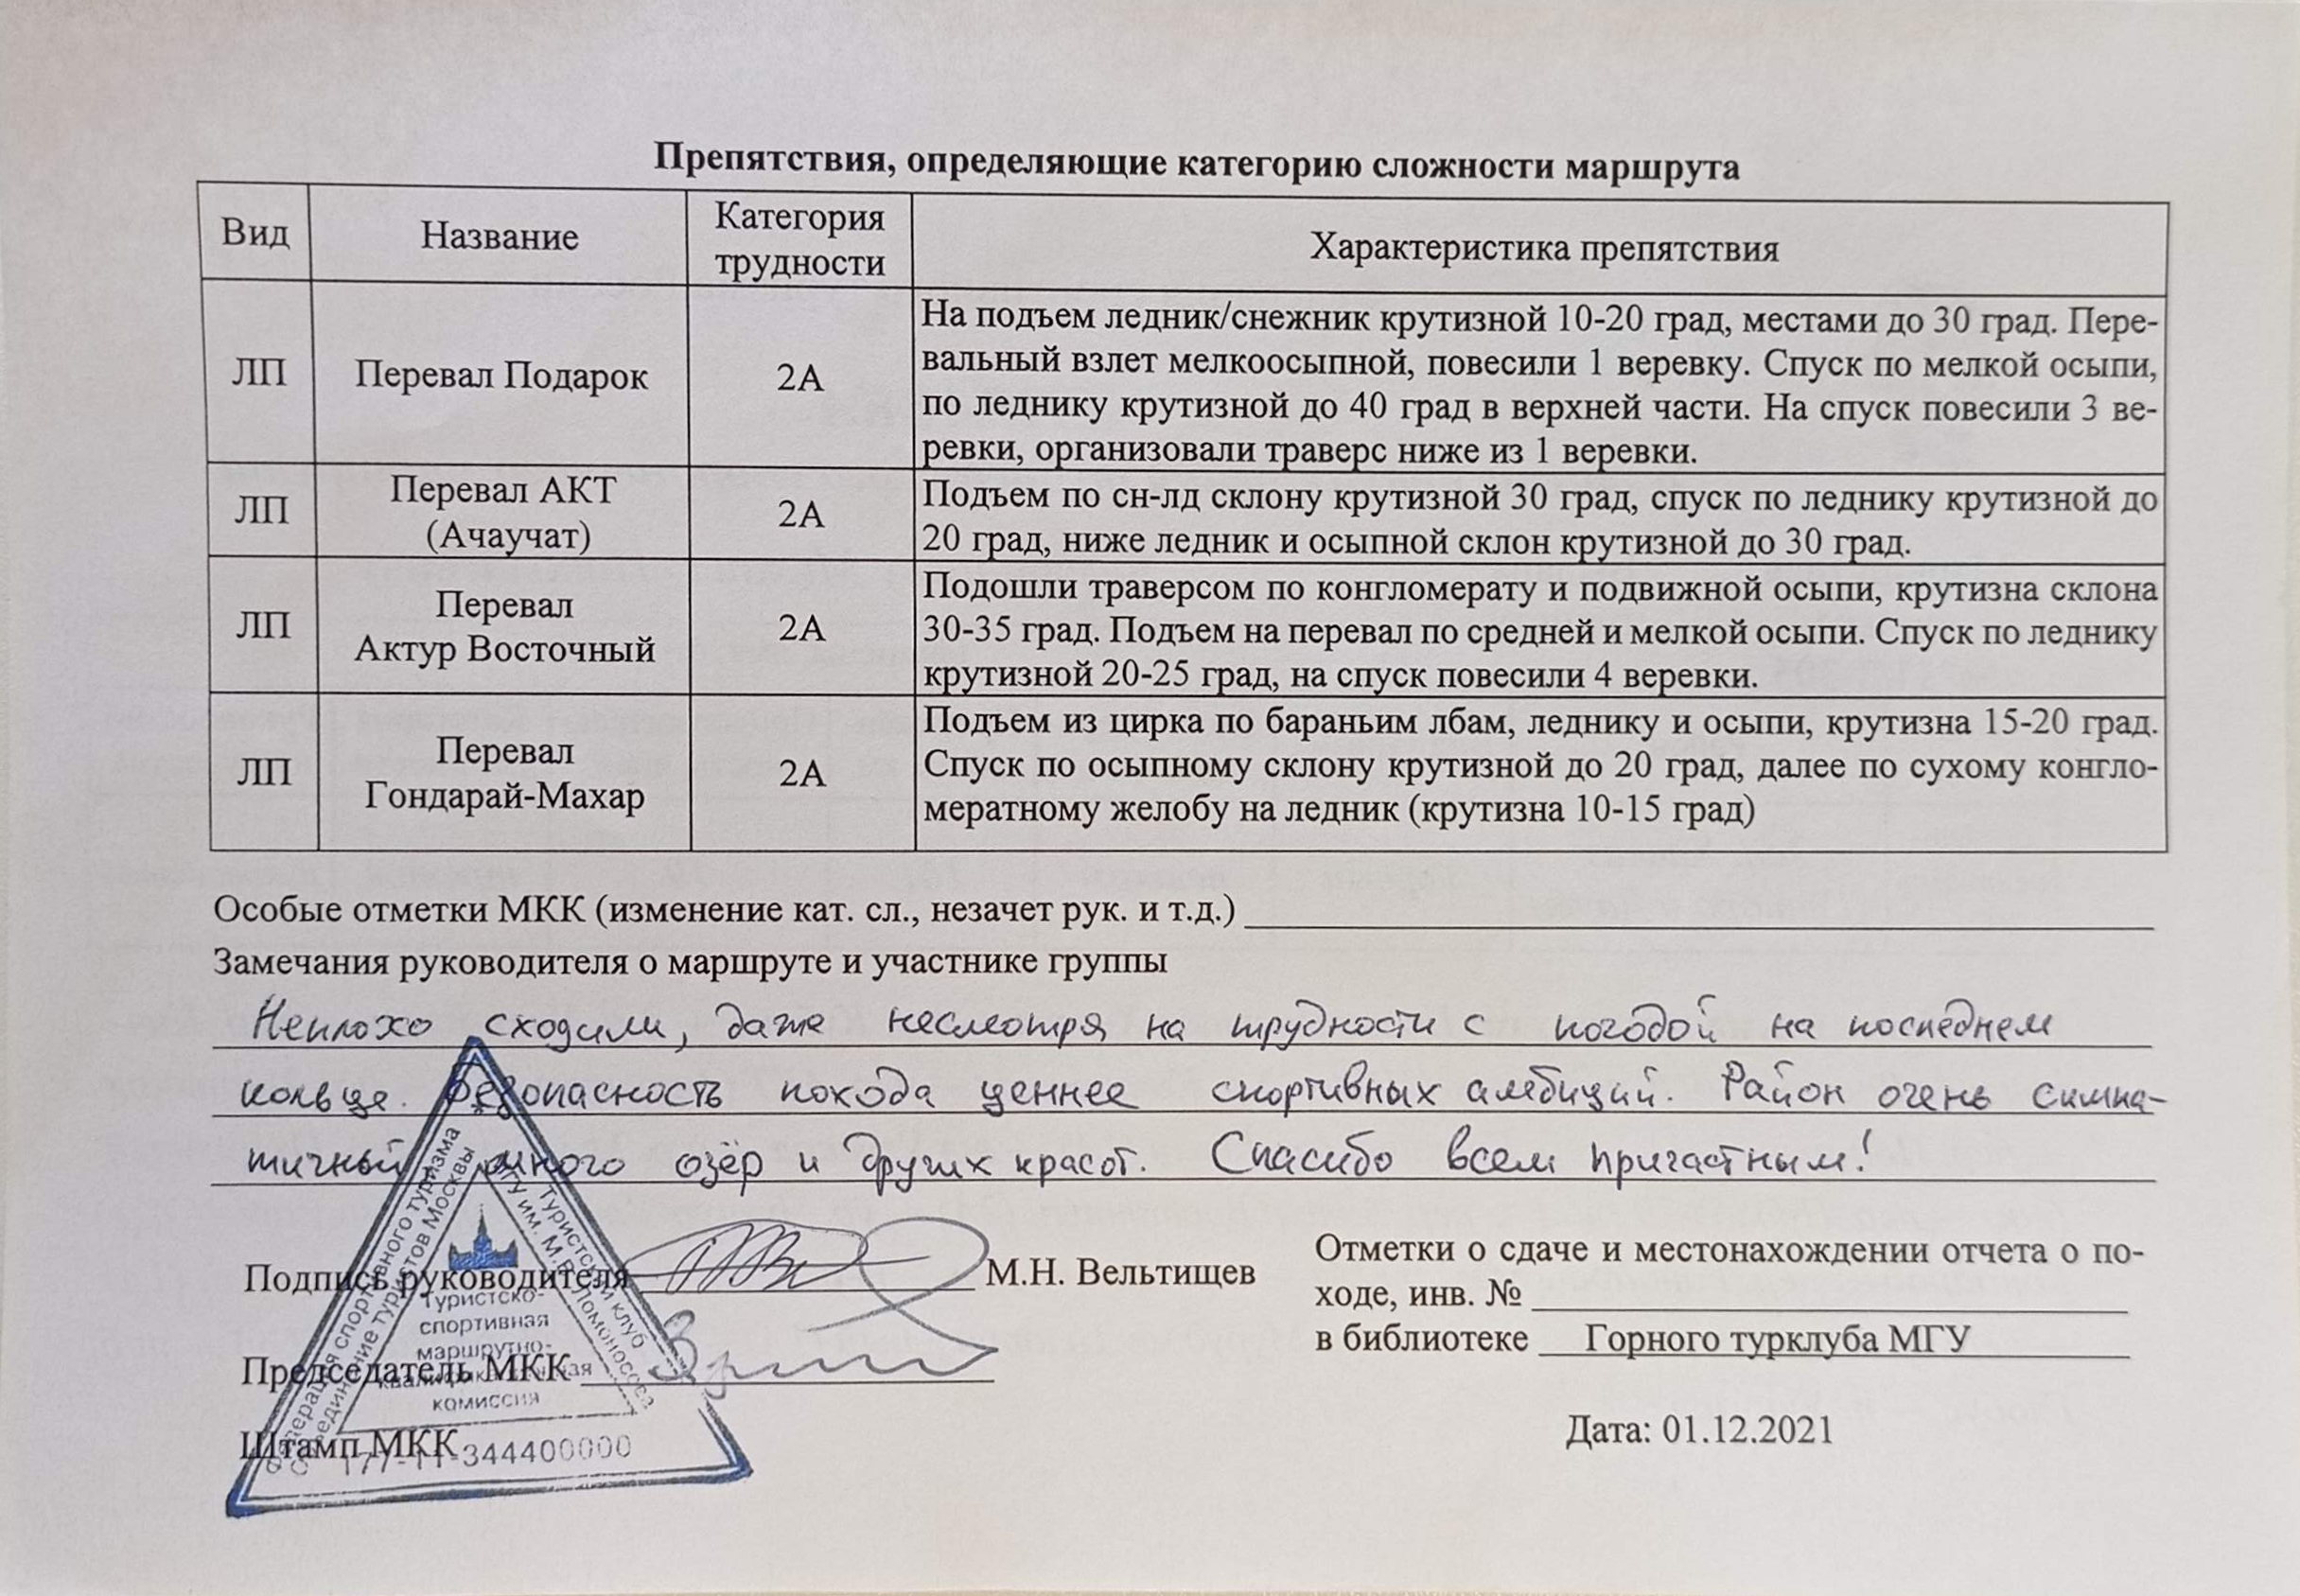 Препятствия, определяющие категорию сложности маршрута
Вид Название Категория трудности Характеристика препятствия
ЛП Перевал Подарок 2А На подъем ледник/снежник крутизной 10-20 град, местами до 30 град. Пере-
вальный взлет мелкоосыпной, повесили 1 веревку. Спуск по мелкой осыпи,
по леднику крутизной до 40 град в верхней части. На спуск повесили 3 ве-
ревки, организовали траверс ниже из 1 веревки.
ЛП Перевал АКТ (Ачаучат) 2А Подъем по сн-лд склону крутизной 30 град, спуск по леднику крутизной до
20 град, ниже ледник и осыпной склон крутизной до 30 град.
ЛП Перевал Актур Восточный 2А Подошли траверсом по конгломерату и подвижной осыпи, крутизна склона
30-35 град. Подъем на перевал по средней и мелкой осыпи. Спуск по леднику
крутизной 20-25 град, на спуск повесили 4 веревки.
ЛП Перевал Гондарай-Махар 2А Подъем из цирка по бараньим лбам, леднику и осыпи, крутизна 15-20 град.
Спуск по осыпному склону крутизной до 20 град, далее по сухому конгло-
мератному желобу на ледник (крутизна 10-15 град)
Особые отметки МКК (изменение кат. сл., незачет рук. и т.д.)
Замечания руководителя о маршруте и участнике группы
Неплохо сходили, даже несмотря на трудности с погодой на последнем
кольце. Безопасность похода ценнее спортивных амбиций. Район очень симпа-
тичный, много озёр и других красот. Спасибо всем причастным!
Подпись руководителя М.Н. Вельтищев
Председатель МКК
Штамп МКК
Отметки о сдаче и местонахождении отчета о по-
ходе, инв. №
в библиотеке Горного турклуба МГУ
Дата: 01.12.2021
Федерация спортивного туризма
Объединение туристов Москвы
Туристский клуб
МГУ им. М.В. Ломоносова
Туристско-
спортивная
маршрутно-
квалификационная
комиссия
177-11-344400000